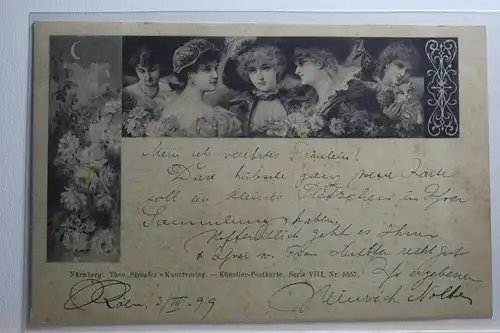 Mein sehr verehrtes Fräulein!
Diese hübsche ganz neue Karte
soll ein kleines Plätzchen in Ihrer
Sammlung haben.
Hoffentlich geht es Ihnen
& Ihrer w. Frau Mutter recht gut
Ihr ergebener
Nürnberg. Theo. Stroefer's Kunstverlag. — Künstler-Postkarte. Serie VIII, Nr. 5557.
Cöln. 3/IV. 99
Heinrich Nolten